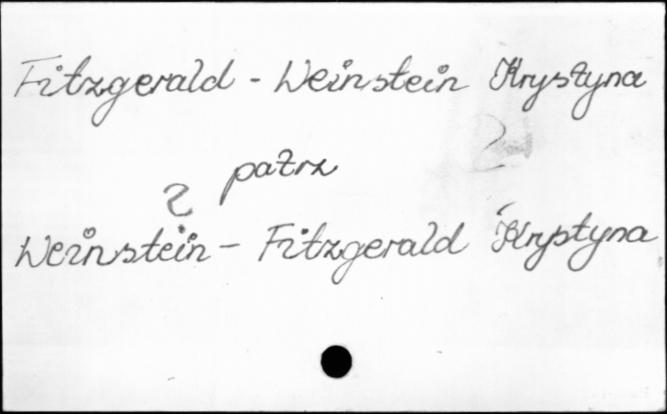 Fitzgerald - Weinstein Krystyna
patrz
2
Weinstein - Fitzgerald Krystyna